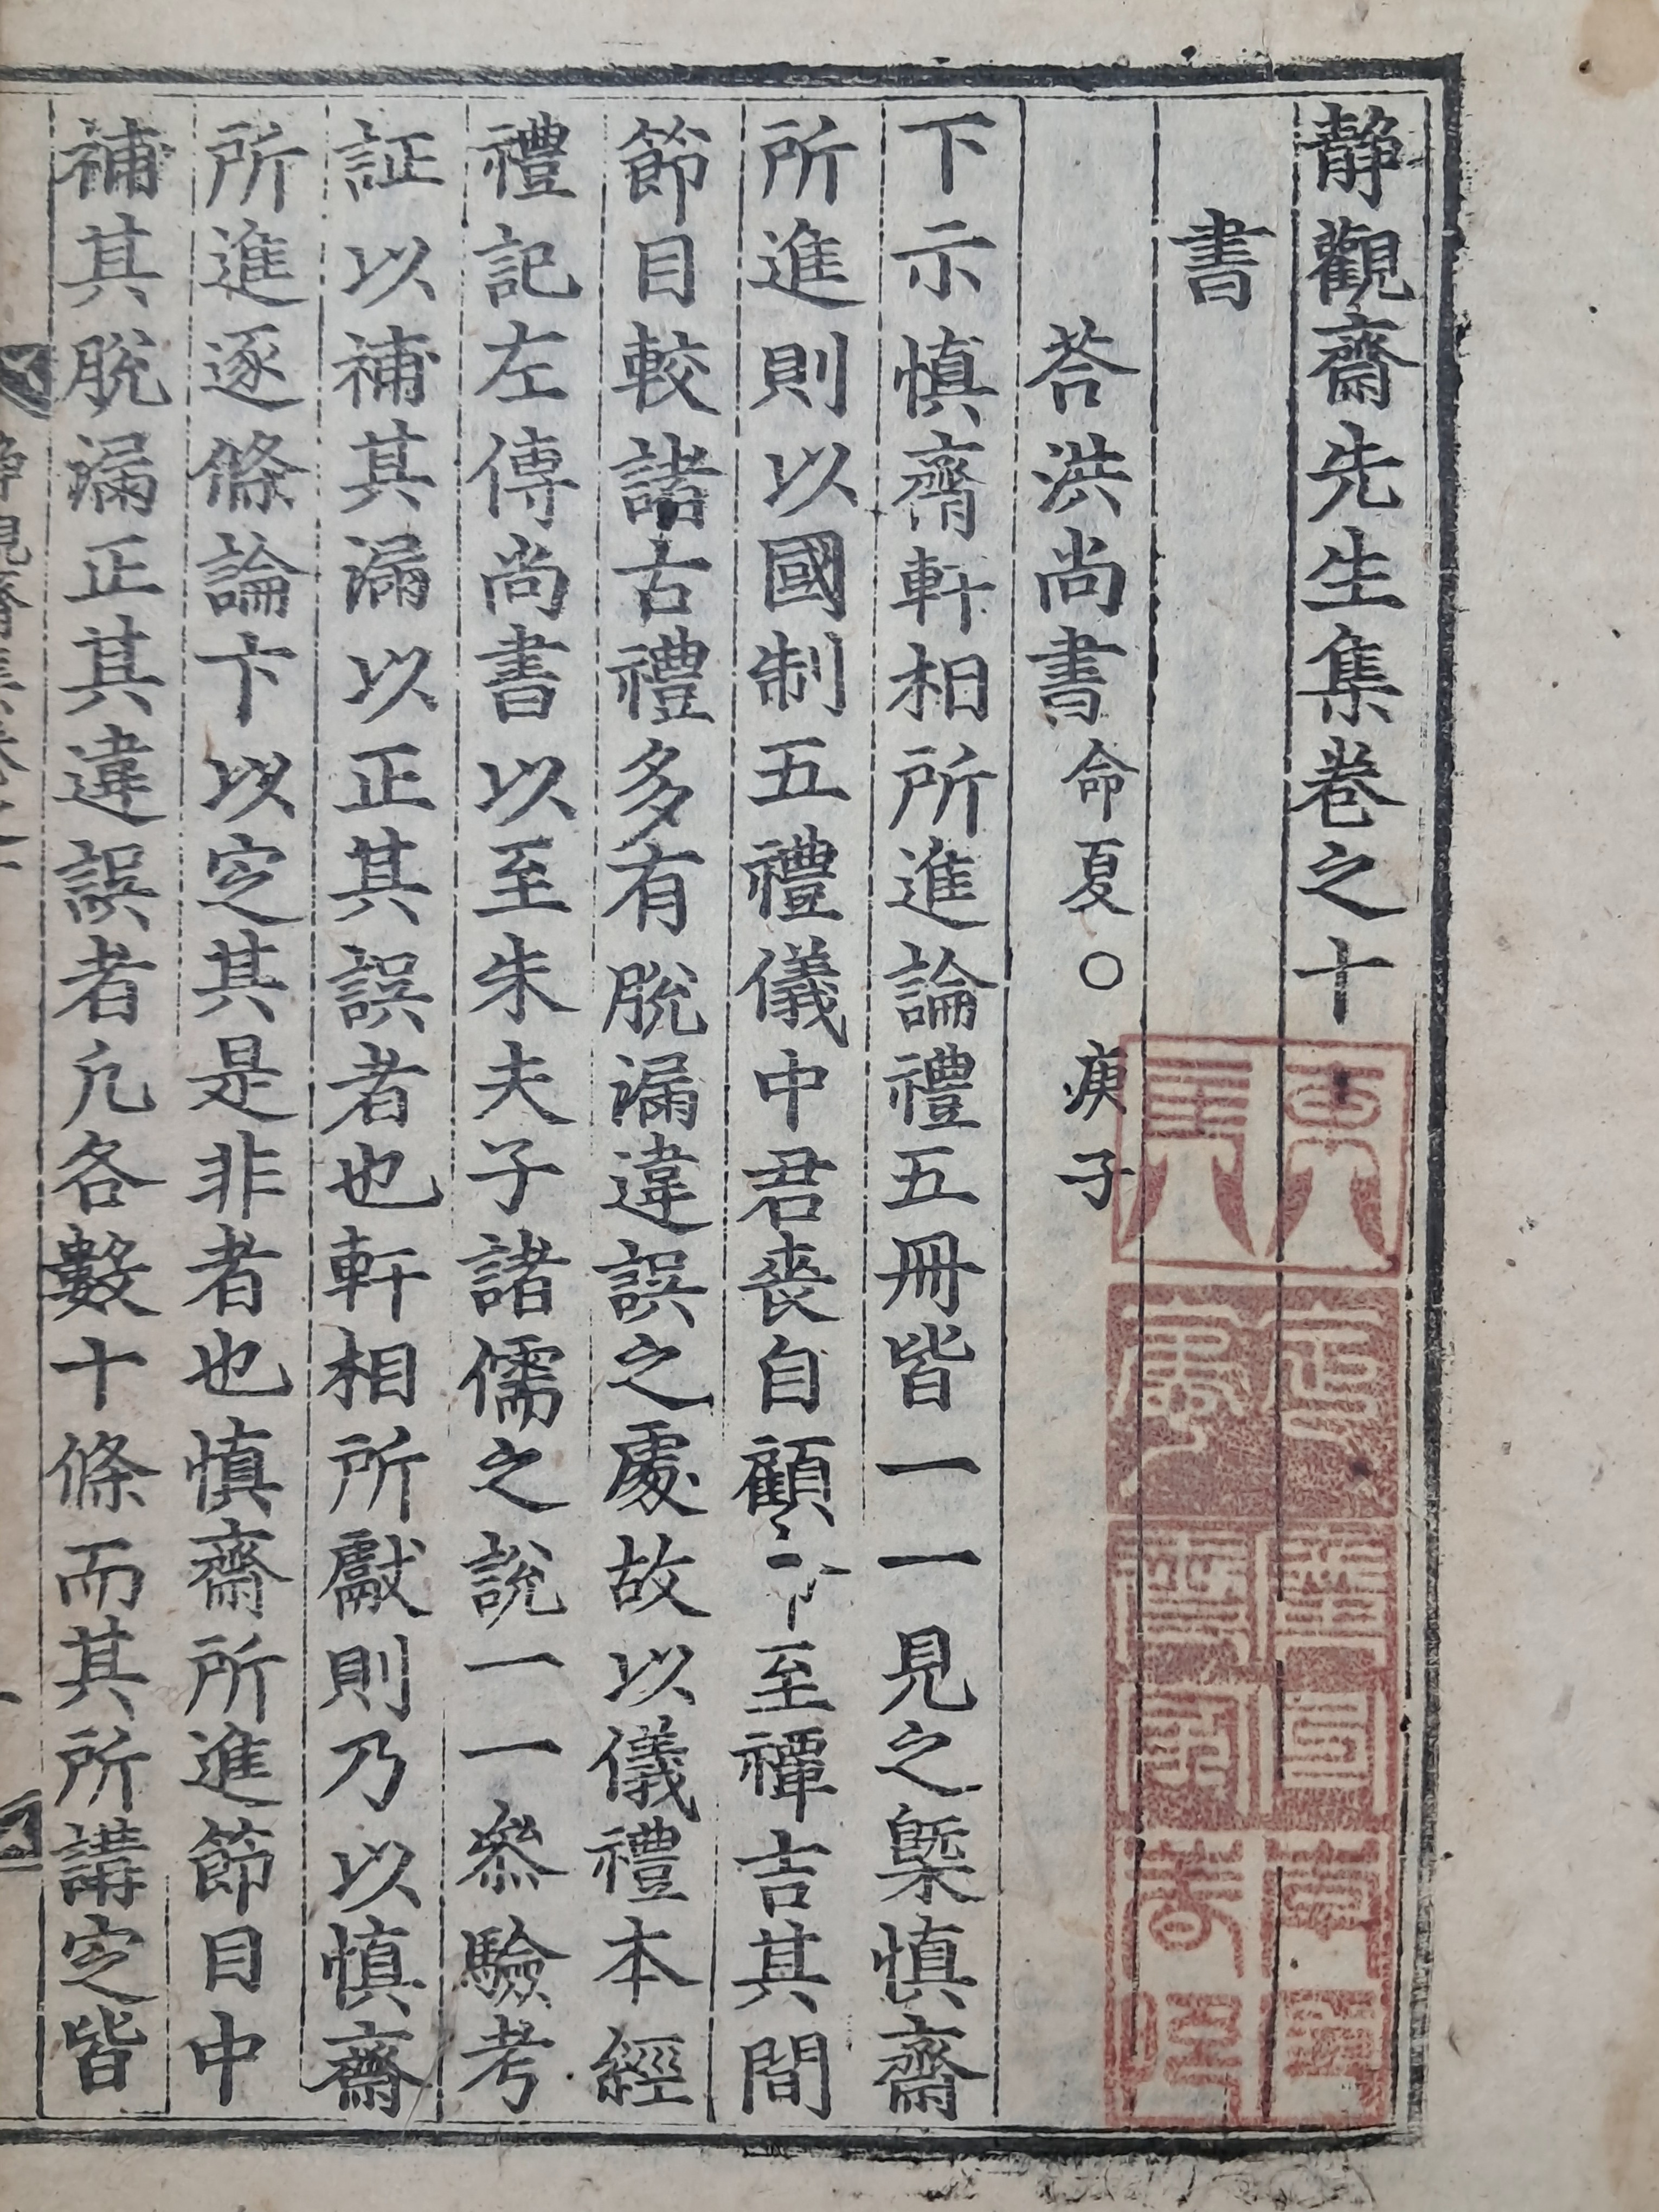 静觀齋先生集卷之十
書
荅洪尚書命夏○庚子
下示慎齋軒相所進論禮五冊皆一一見之槩慎齋
所進則以國制五禮儀中君喪自顧至禫吉其間
節目較諸古禮多有脫漏違誤之處故以儀禮本經
禮記左傳尚書以至朱夫子諸儒之說一一叅驗考
証以補其漏以正其誤者也軒相所獻則乃以慎齋
所進逐條論卞以定其是非者也慎齋所進節目中
補其脫漏正其違誤者凡各數十條而其所講定皆